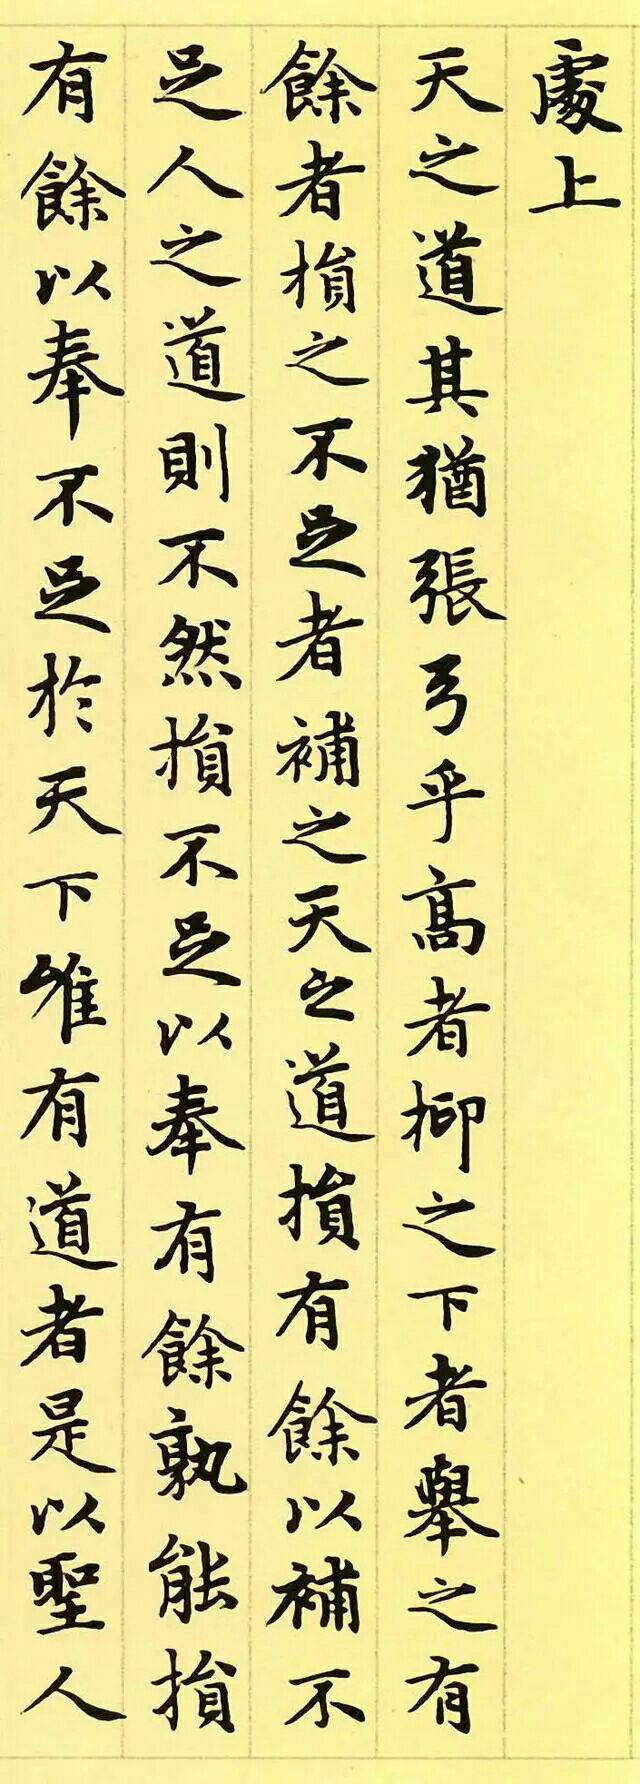 處上
天之道其猶張弓乎高者抑之下者舉之有
餘者損之不足者補之天之道損有餘以補不
足人之道則不然損不足以奉有餘孰能損
有餘以奉不足於天下唯有道者是以聖人